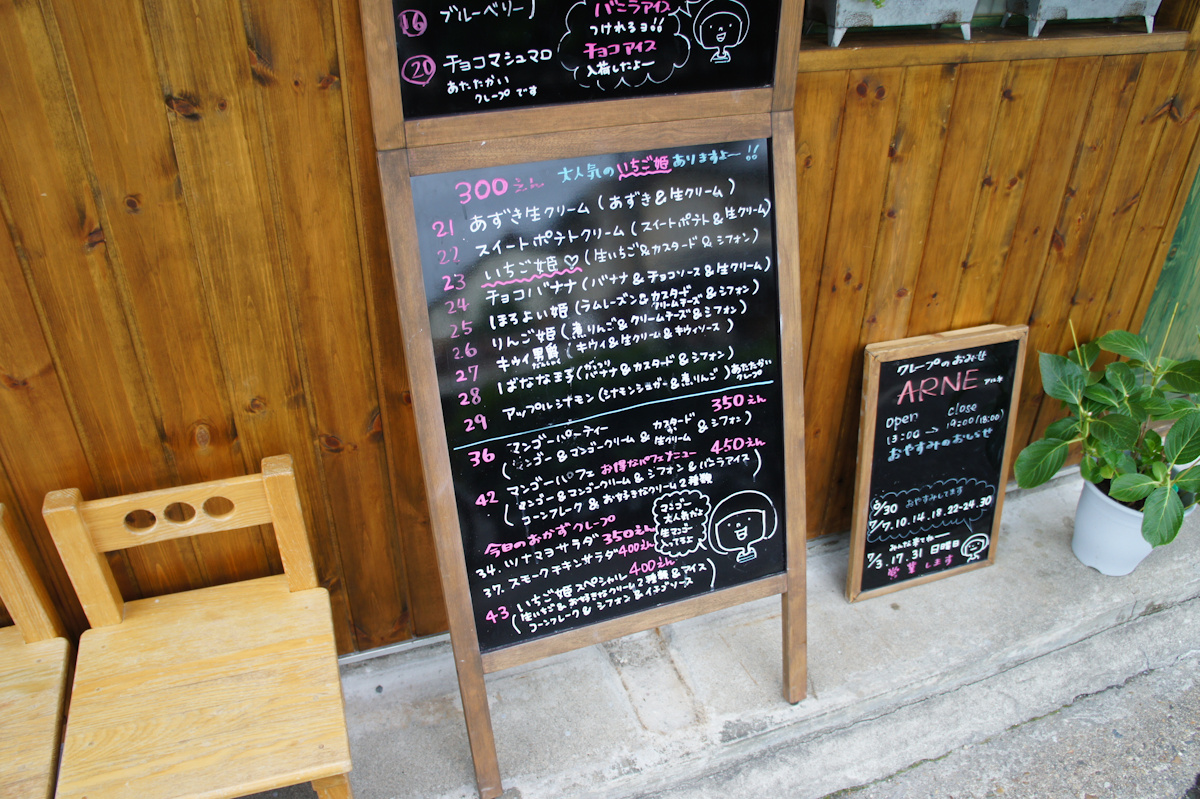 16 ブルーベリー
バニラアイス
つけれるヨ!!
チョコアイス
入荷したよー
20 チョコマシュマロ
あたたかい
クレープです
300えん 大人気のいちご姫ありますよー!!
21 あずき生クリーム(あずき&生クリーム)
22 スイートポテトクリーム(スイートポテト&生クリーム)
23 いちご姫♡(生いちご&カスタード&シフォン)
24 チョコバナナ(バナナ&チョコソース&生クリーム)
25 ほろよい姫(ラムレーズン&カスタード&シフォン)
26 りんご姫(煮りんご&クリームチーズ&シフォン)
27 キウイ男爵(キウイ&生クリーム&キウイソース)
だんしゃく
28 ばなな王子(バナナ&カスタード&シフォン)
29 アップルシナモン(シナモンシュガー&煮りんご)あたたかい
クレープ
350えん
36 マンゴーパーティー
(マンゴー&マンゴークリーム&カスタードor生クリーム&シフォン)
450えん
42 マンゴーパフェ お得なパフェメニュー
(マンゴー&マンゴークリーム&シフォン&バニラアイス
コーンフレーク&お好きなクリーム2種類)
マンゴー
大人気だよ
生マンゴー
入ってるよ
今日のおかずクレープ
34. ツナマヨサラダ 350えん
37. スモークチキンサラダ 400えん
43 いちご姫スペシャル 400えん
(生いちご&お好きなクリーム2種類&アイス
コーンフレーク&シフォン&イチゴソース)
クレープのおみせ
ARNE アルネ
open close
13:00→19:00(18:00)
おやすみのおしらせ
6/30 おやすみしてます
7/7.10.14.18.22-24.30
みんな来てねー
7/3.17.31 日曜日
営業します